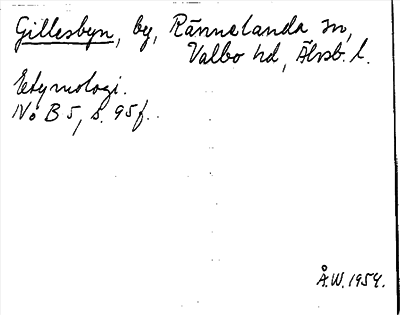 Gillesbyn, by, Rännelanda sn,
Valbo hd, Älvsb. l.
Etymologi.
NoB 5, s. 95f.
Å.W. 1954.